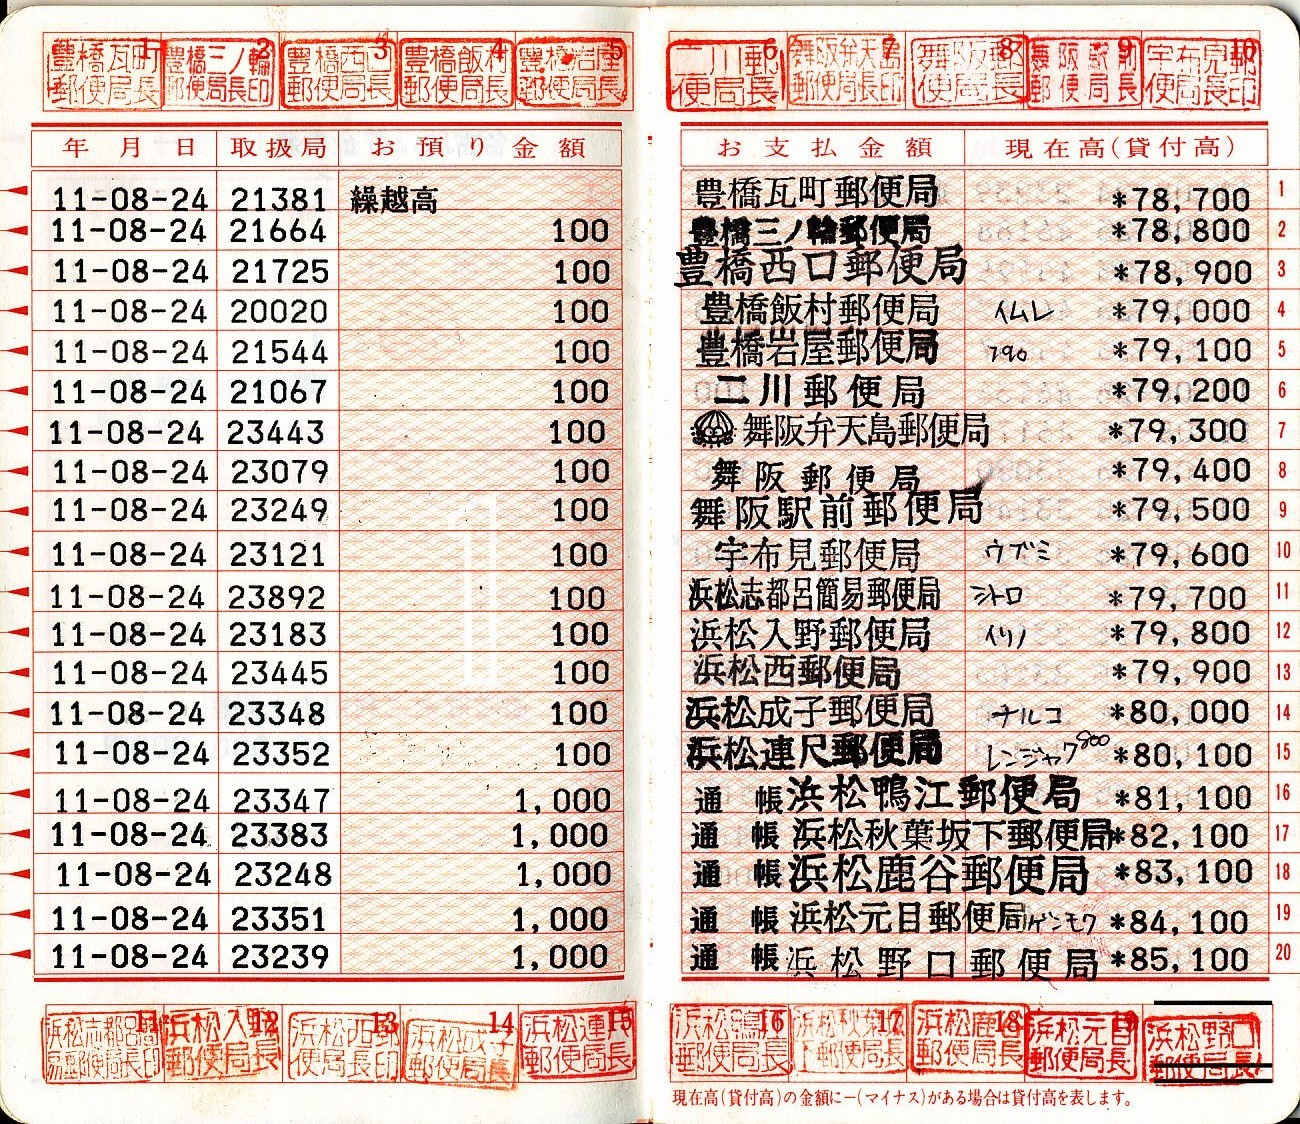 豊橋瓦町郵便局長 1 豊橋三ノ輪郵便局長印 2 豊橋西郵便局長 3 豊橋飯村郵便局長 4 豊橋岩屋郵便局長 5 二川郵便局長 6 舞阪弁天島郵便局長印 7 舞阪郵便局長 8 舞阪駅前郵便局長 9 宇布見郵便局長印 10
年月日 取扱局 お預り金額 お支払金額 現在高(貸付高)
11-08-24 21381 繰越高 豊橋瓦町郵便局 *78,700 1
11-08-24 21664 100 豊橋三ノ輪郵便局 *78,800 2
11-08-24 21725 100 豊橋西口郵便局 *78,900 3
11-08-24 20020 100 豊橋飯村郵便局 イムレ *79,000 4
11-08-24 21544 100 豊橋岩屋郵便局 790 *79,100 5
11-08-24 21067 100 二川郵便局 *79,200 6
11-08-24 23443 100 舞阪弁天島郵便局 *79,300 7
11-08-24 23079 100 舞阪郵便局 *79,400 8
11-08-24 23249 100 舞阪駅前郵便局 *79,500 9
11-08-24 23121 100 宇布見郵便局 ウブミ *79,600 10
11-08-24 23892 100 浜松志都呂簡易郵便局 シトロ *79,700 11
11-08-24 23183 100 浜松入野郵便局 イリノ *79,800 12
11-08-24 23445 100 浜松西郵便局 *79,900 13
11-08-24 23348 100 浜松成子郵便局 ナルコ *80,000 14
11-08-24 23352 100 浜松連尺郵便局 レンジャク 800 *80,100 15
11-08-24 23347 1,000 通帳 浜松鴨江郵便局 *81,100 16
11-08-24 23383 1,000 通帳 浜松秋葉坂下郵便局 *82,100 17
11-08-24 23248 1,000 通帳 浜松鹿谷郵便局 *83,100 18
11-08-24 23351 1,000 通帳 浜松元目郵便局 ゲンモク *84,100 19
11-08-24 23239 1,000 通帳 浜松野口郵便局 *85,100 20
浜松志都呂簡易郵便局長印 11 浜松入野郵便局長 12 浜松西郵便局長印 13 浜松成子郵便局長 14 浜松連尺郵便局長 15 浜松鴨江郵便局長 16 浜松秋葉坂下郵便局長 17 浜松鹿谷郵便局長 18 浜松元目郵便局長 19 浜松野口郵便局長
現在高(貸付高)の金額に−(マイナス)がある場合は貸付高を表します。